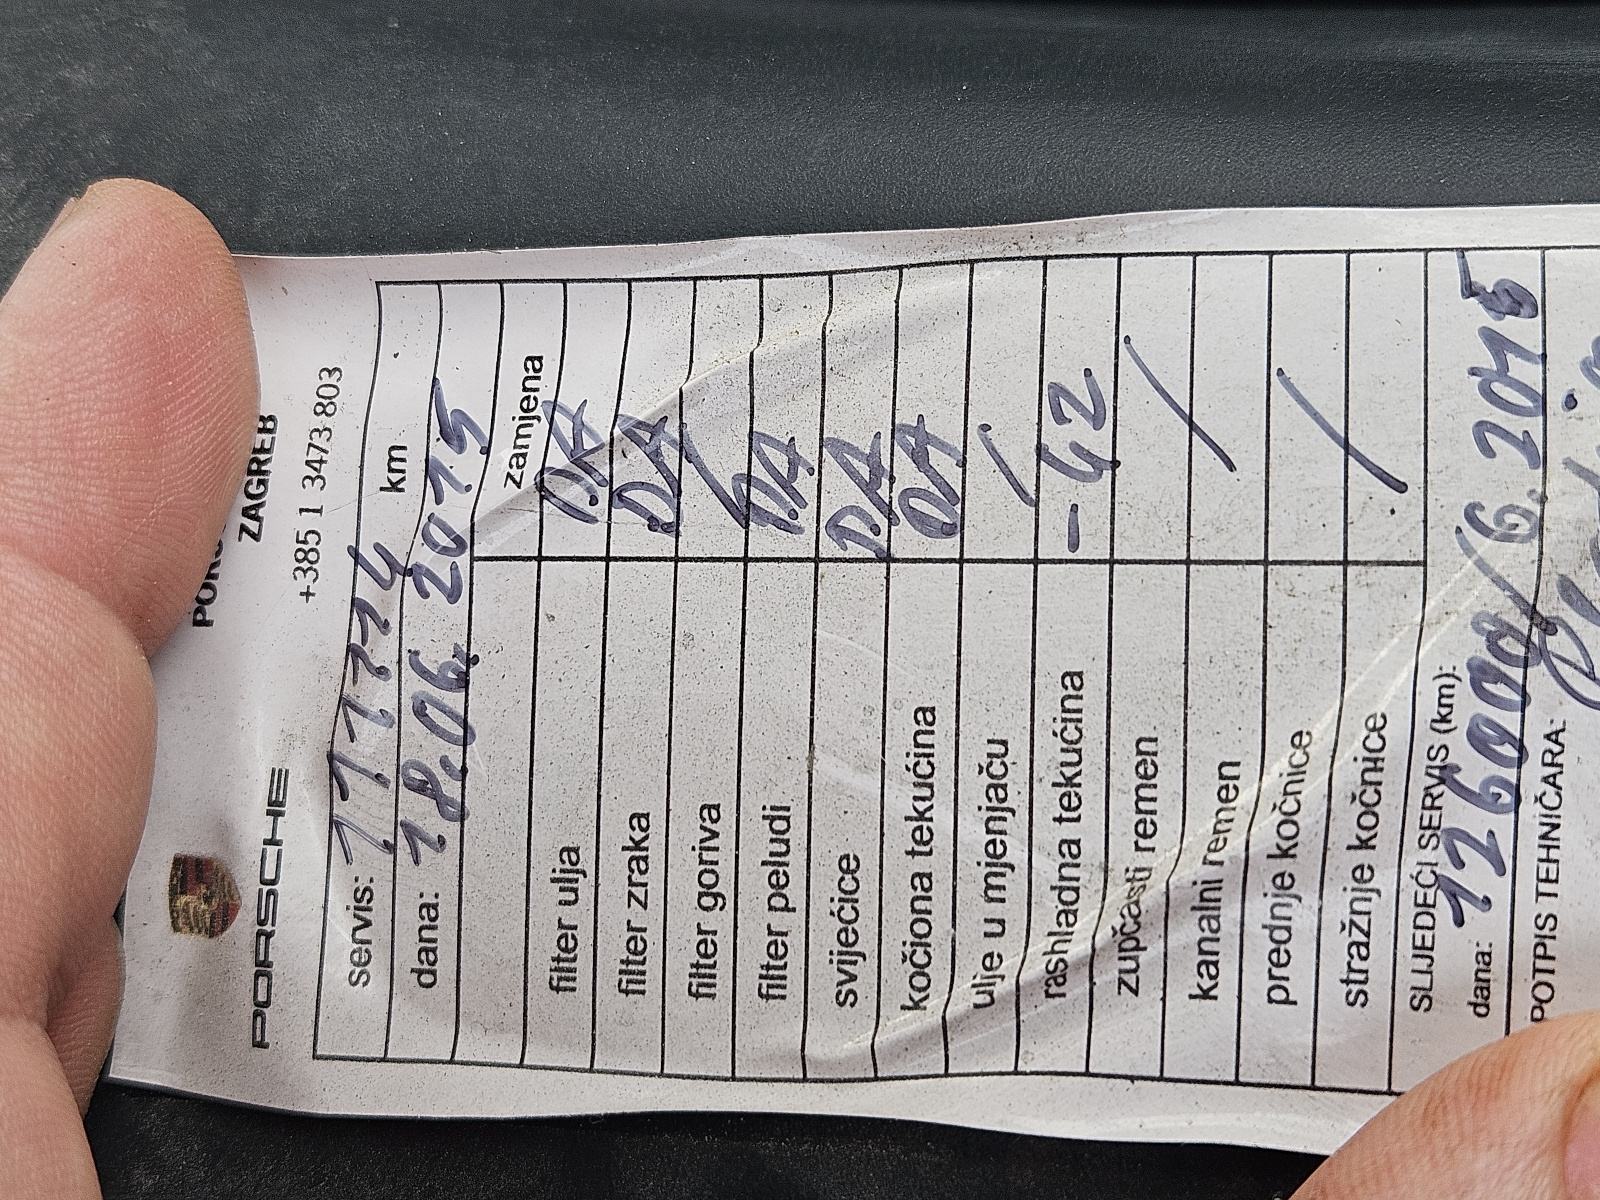 PORSCHE
ZAGREB
+385 1 3473 803
servis: 11114 km
dana: 18.06. 2015
zamjena
filter ulja DA
filter zraka DA
filter goriva /
filter peludi DA
svijećice DA
kočiona tekućina DA
ulje u mjenjaču /
rashladna tekućina - 42
zupčasti remen /
kanalni remen
prednje kočnice /
stražnje kočnice
SLIJEDEĆI SERVIS (km):
dana: 126000/6.2015
POTPIS TEHNIČARA: